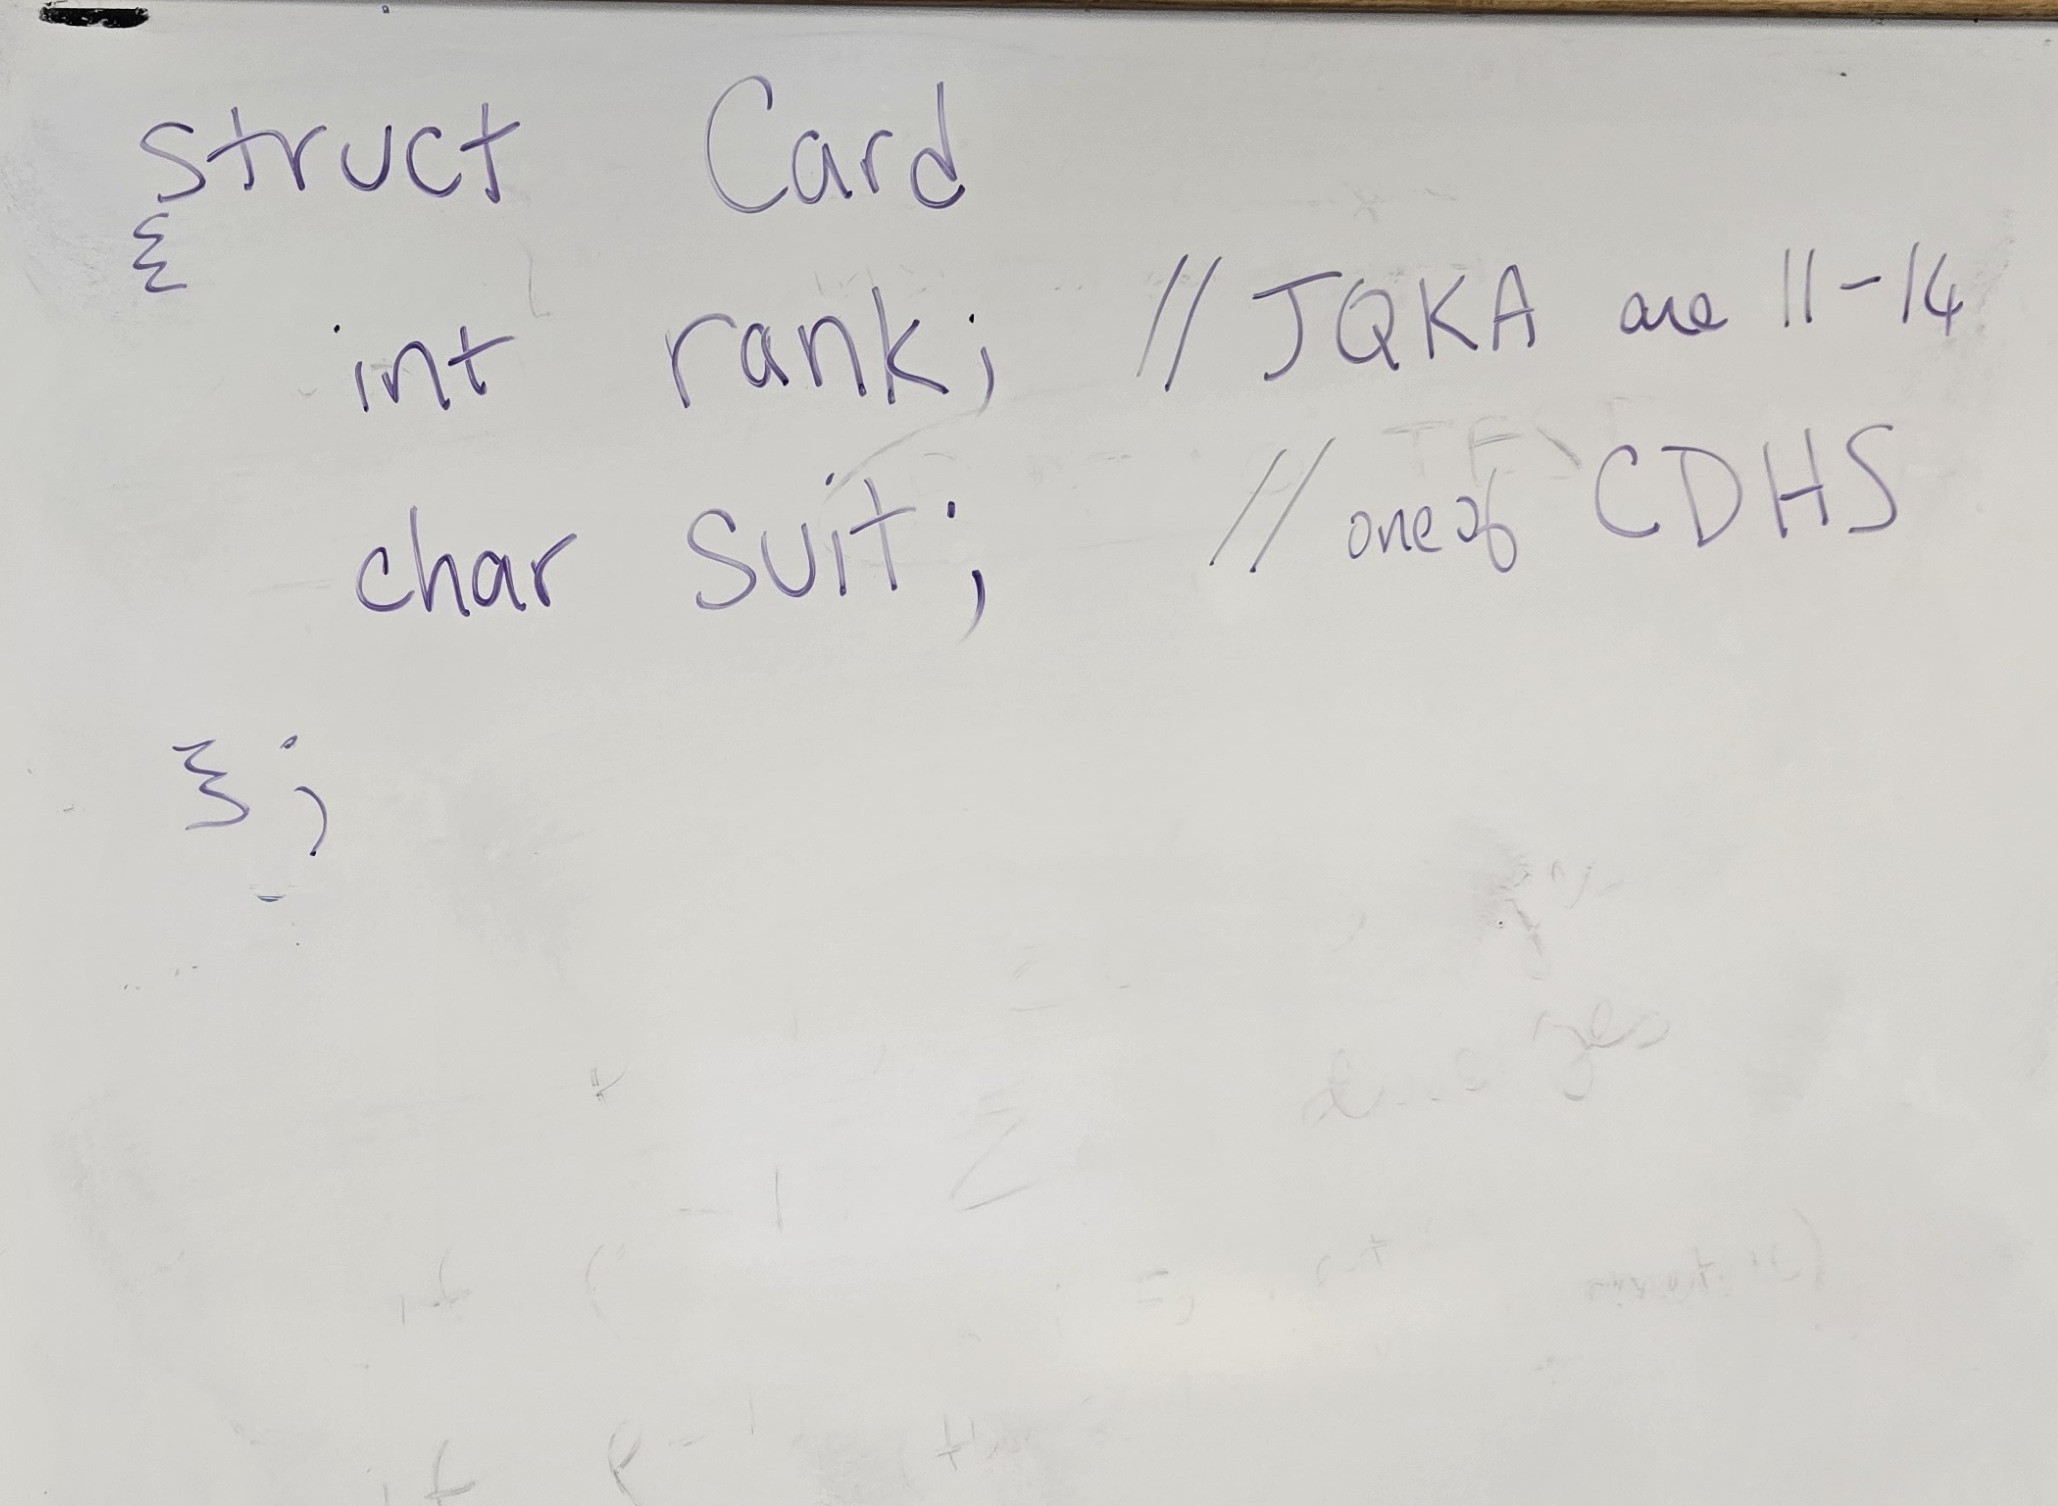 struct Card
{
int rank; // JQKA are 11-14
char suit; // one of CDHS
};